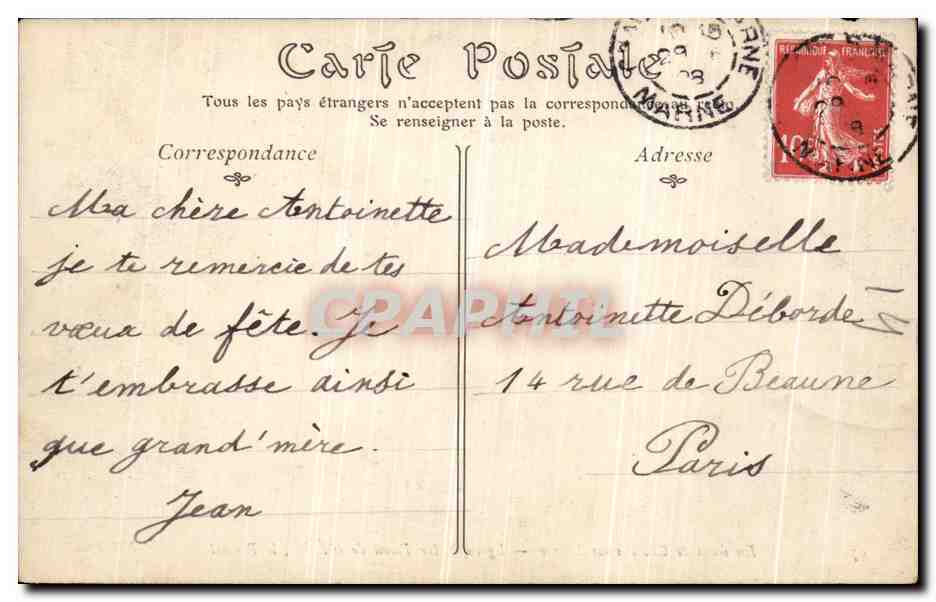 Carte Postale
Tous les pays étrangers n'acceptent pas la correspondance au recto.
Se renseigner à la poste.
Correspondance
Ma chère Antoinette
je te remercie de tes
vœux de fête. Je
t'embrasse ainsi
que grand'mère.
Jean
Adresse
Mademoiselle
Antoinette Déborde
14 rue de Beaune
Paris
REPUBLIQUE FRANÇAISE
10
MARNE
29
08
MARNE
CPAPHIL